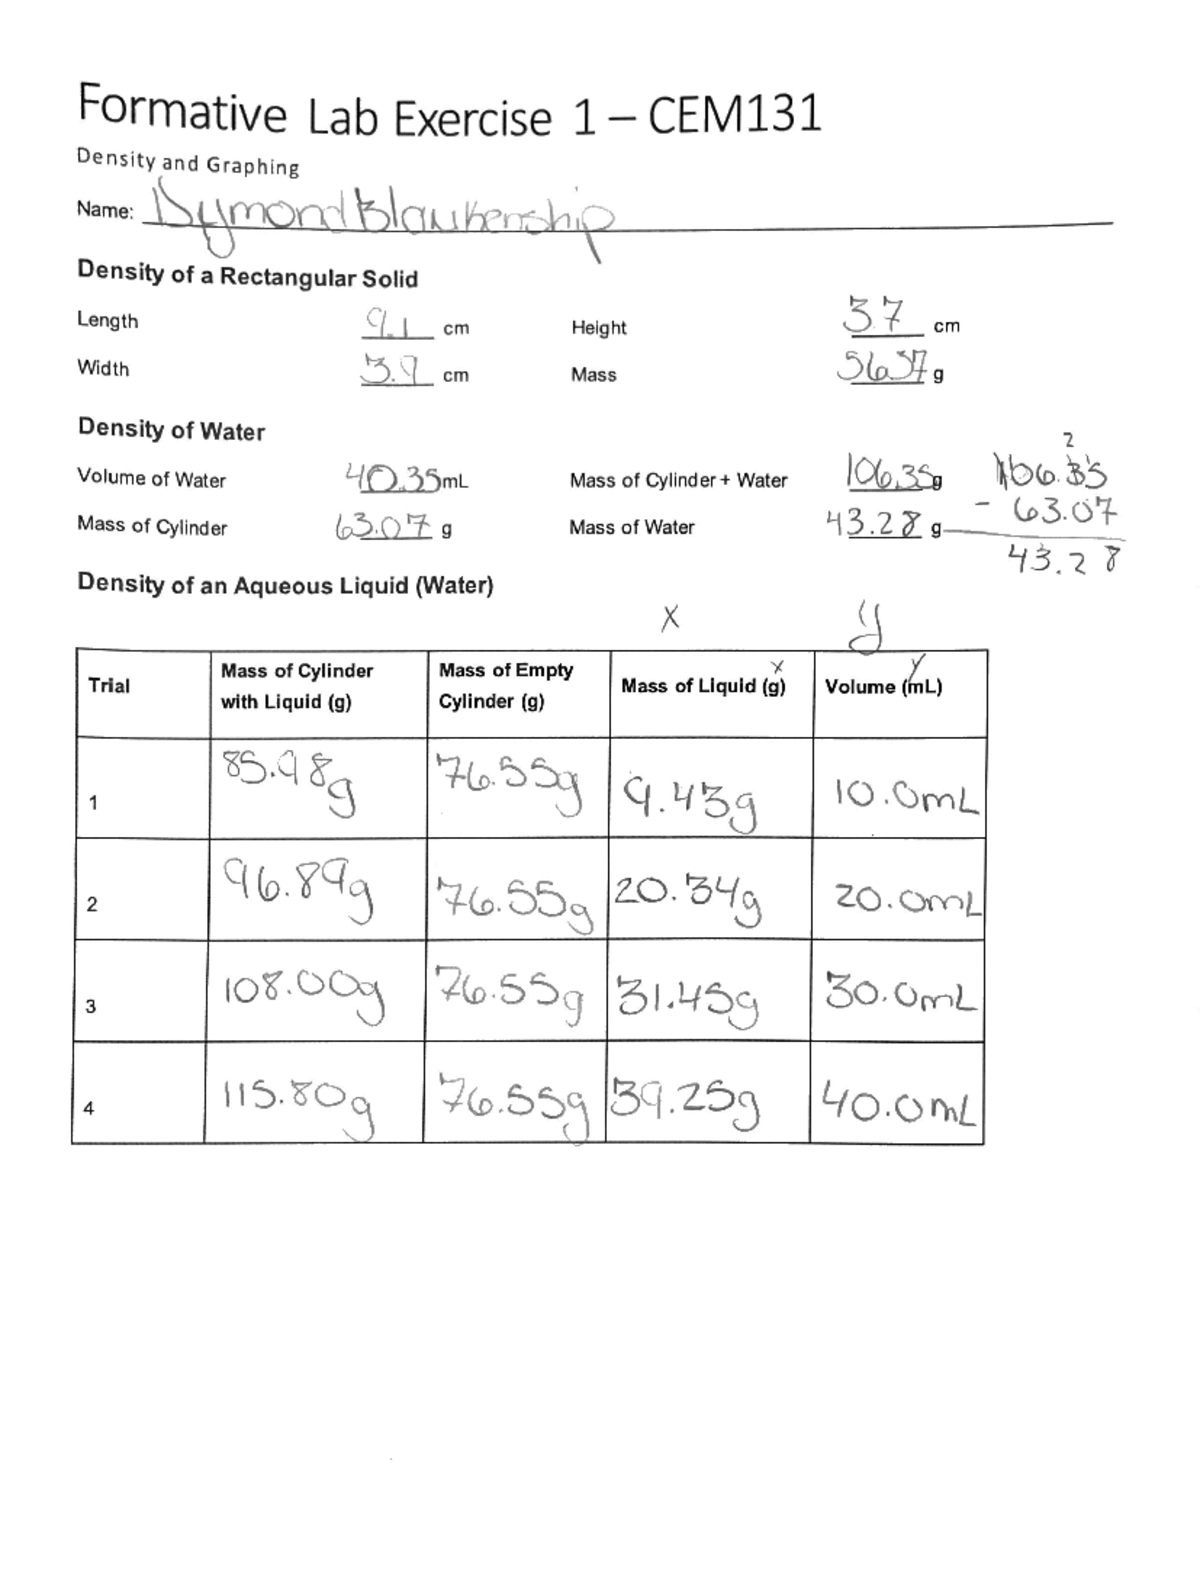 Formative Lab Exercise 1 – CEM131
Density and Graphing
Name: Dymond Blankenship
Density of a Rectangular Solid
Length 9.1 cm Height 3.7 cm
Width 3.9 cm Mass 56.37 g
Density of Water
2
Volume of Water 40.35 mL Mass of Cylinder + Water 106.35 g 106.35
Mass of Cylinder 63.07 g Mass of Water 43.28 g - 63.07
43.28
Density of an Aqueous Liquid (Water)
x y
Trial Mass of Cylinder with Liquid (g) Mass of Empty Cylinder (g) Mass of Liquid (g) x Volume (mL) y
1 85.98g 76.55g 9.43g 10.0mL
2 96.89g 76.55g 20.34g 20.0mL
3 108.00g 76.55g 31.45g 30.0mL
4 115.80g 76.55g 39.25g 40.0mL